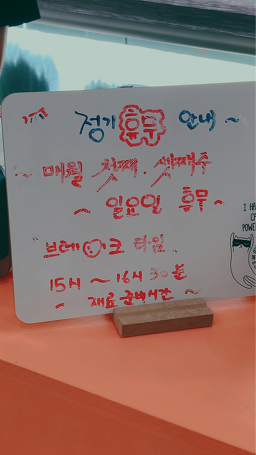 정기 휴무 안내 ~
~ 매월 첫째. 셋째주
~ 일요일 휴무 ~
"브레이크 타임"
15시 ~ 16시 30분
~ 재료준비시간 ~
I HA
POWE